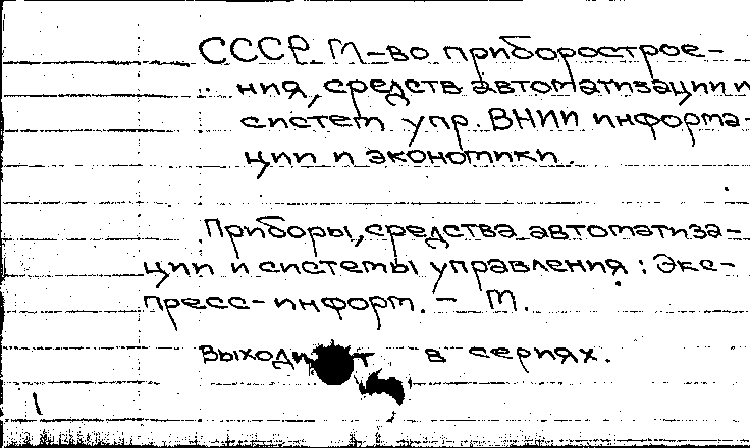 СССР. М-во приборострое-
ния, средств автоматизации и
систем упр. ВНИИ информа-
ции и экономики.
Приборы, средства автоматиза-
ции и системы управления: Экс-
пресс-информ. – М.
Выходит в сериях.